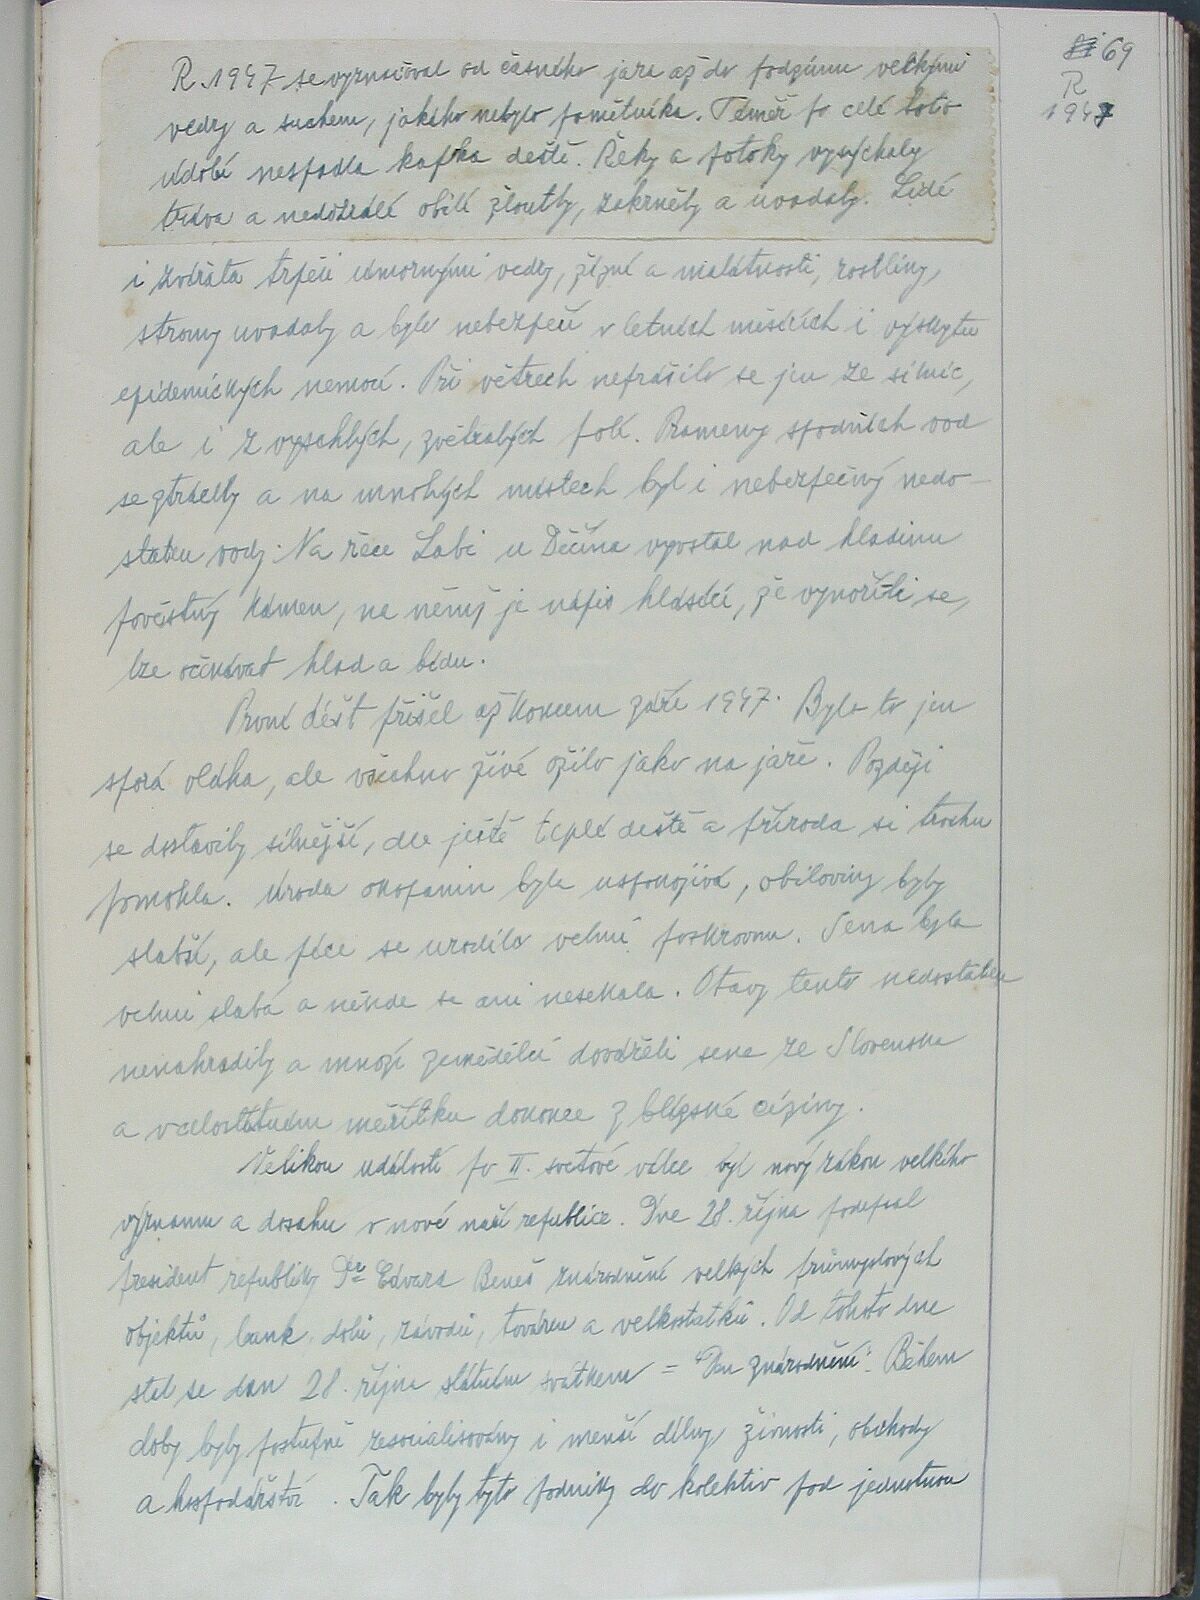 69
R
1947
R. 1947 se vyznačoval od časného jara až do podzimu velkými
vedry a suchem, jakého nebylo pamětníka. Téměř po celé toto
údobí nespadla kapka deště. Řeky a potoky vysýchaly
tráva a nedozrálé obilí žloutly, zakrněly a uvadaly. Lidé
i zvířata trpěli úmornými vedry, žízní a malátností, rostliny,
stromy uvadaly a bylo nebezpečí v letních měsících i výskytu
epidemických nemocí. Při větrech neprášilo se jen ze silnic,
ale i z vyschlých, zvětralých polí. Prameny spodních vod
se ztrácely a na mnohých místech byl i nebezpečný nedo-
statek vody. Na řece Labi u Děčína vyvstal nad hladinu
pověstný kámen, na němž je nápis hlásící, že vynoří-li se,
lze očekávat hlad a bídu.
První déšť přišel až koncem září 1947. Byla to jen
sporá vláha, ale všechno živé ožilo jako na jaře. Později
se dostavily silnější, ale ještě teplé deště a příroda si trochu
pomohla. Úroda okopanin byla uspokojivá, obiloviny byly
slabší, ale píce se urodilo velmi poskrovnu. Sena byla
velmi slabá a někde se ani nesekala. Otavy tento nedostatek
nenahradily a mnozí zemědělci dováželi sena ze Slovenska
a v celostátním měřítku dokonce z blízské ciziny.
Velikou událostí po II. světové válce byl nový zákon velkého
významu a dosahu v nové naší republice. Dne 28. října podepsal
president republiky Dr Edvard Beneš znárodnění velkých průmyslových
objektů, bank, dolů, závodů, továren a velkostatků. Od tohoto dne
stal se den 28. října státním svátkem = "Den znárodnění". Během
doby byly postupně zesocialisovány i menší dílny živnosti, obchody
a hospodářství. Tak byly tyto podniky do kolektiv pod jednotnou